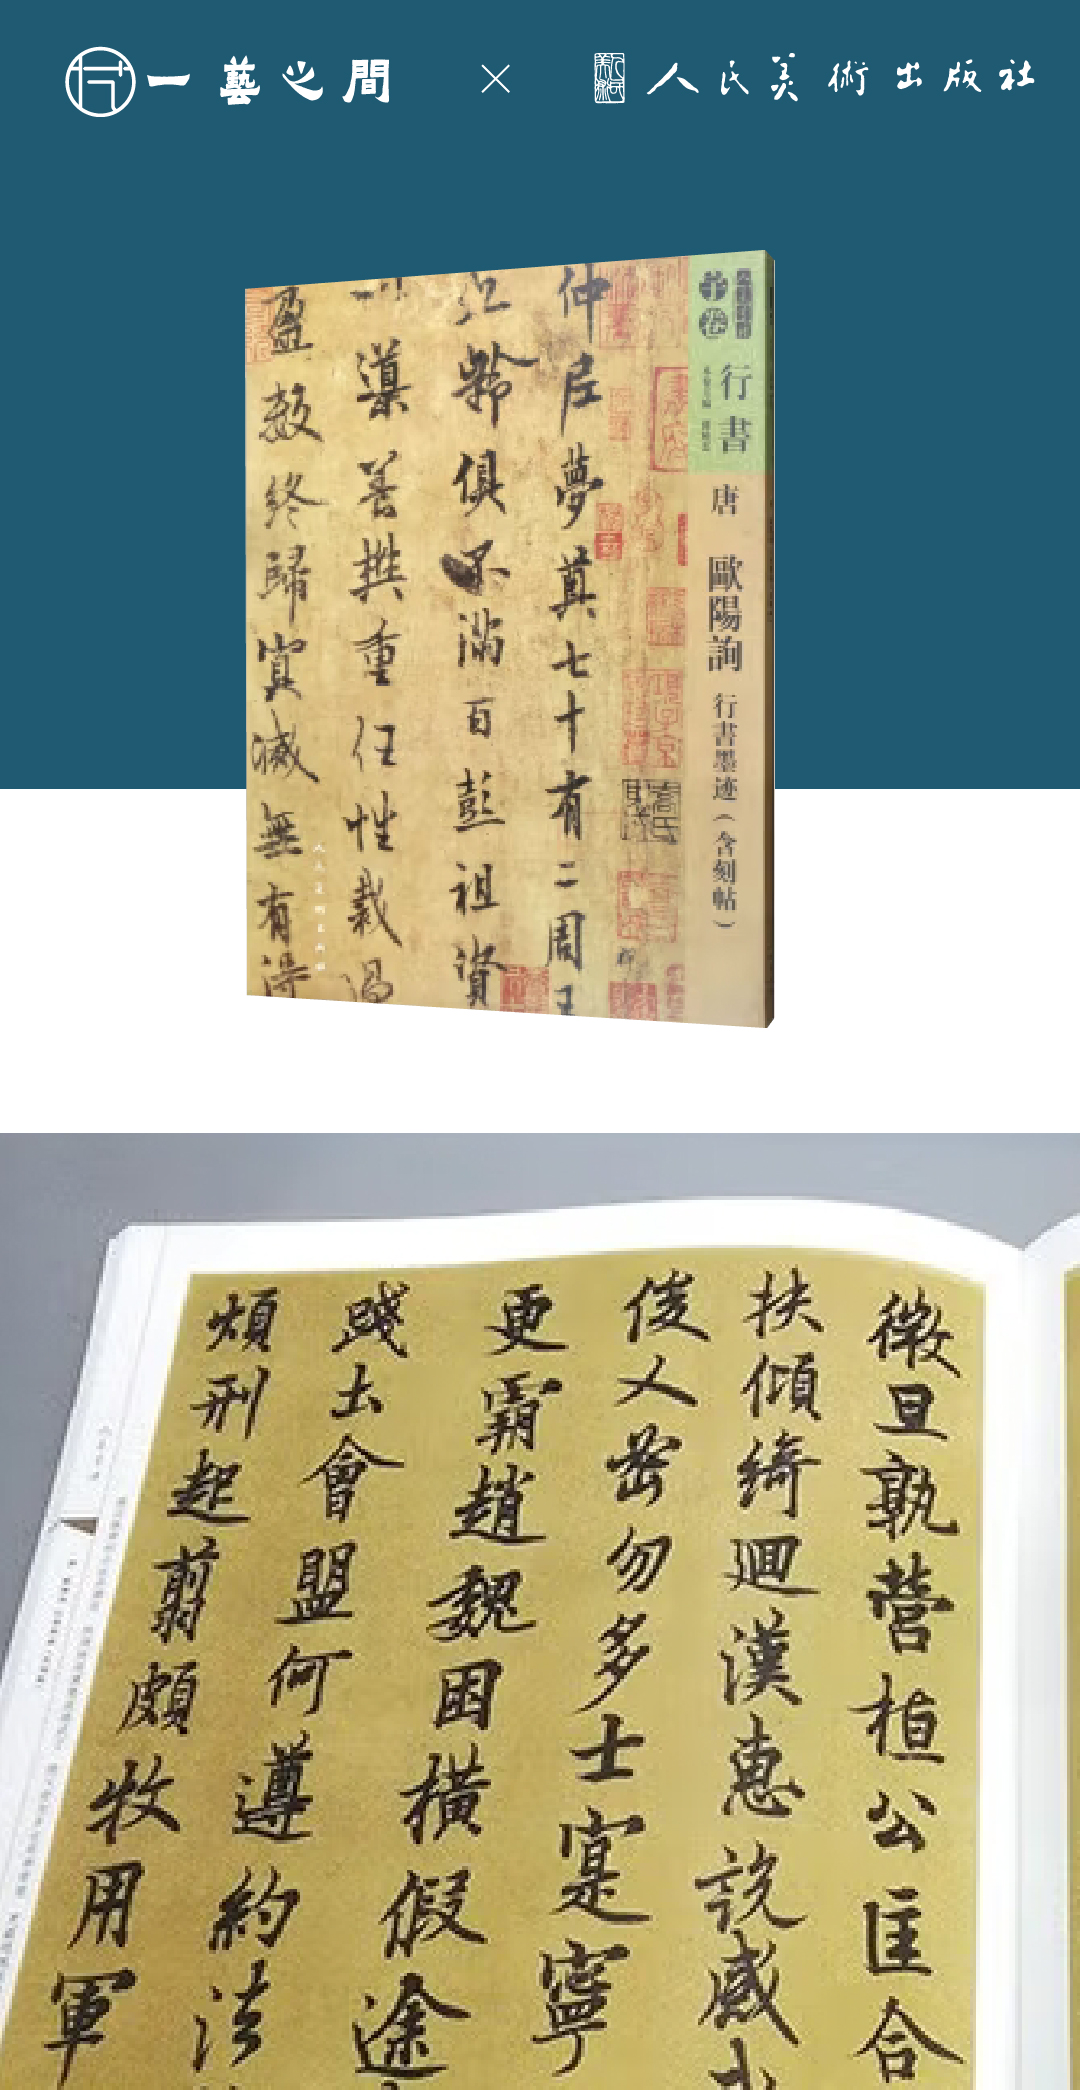 一藝之間
×
人民美術出版社
行書
唐 歐陽詢 行書墨迹（含刻帖）
仲尼夢奠七十有二周王
九齡俱不滿百彭祖資
一
導善撰重任性裁過
盈數終歸冥滅無有得
人民美術出版社
微旦孰營桓公匡合
扶傾綺迴漢惠説感武
俊乂密勿多士寔寧
更霸趙魏困橫假途
踐土會盟何遵約法
煩刑起翦頗牧用軍